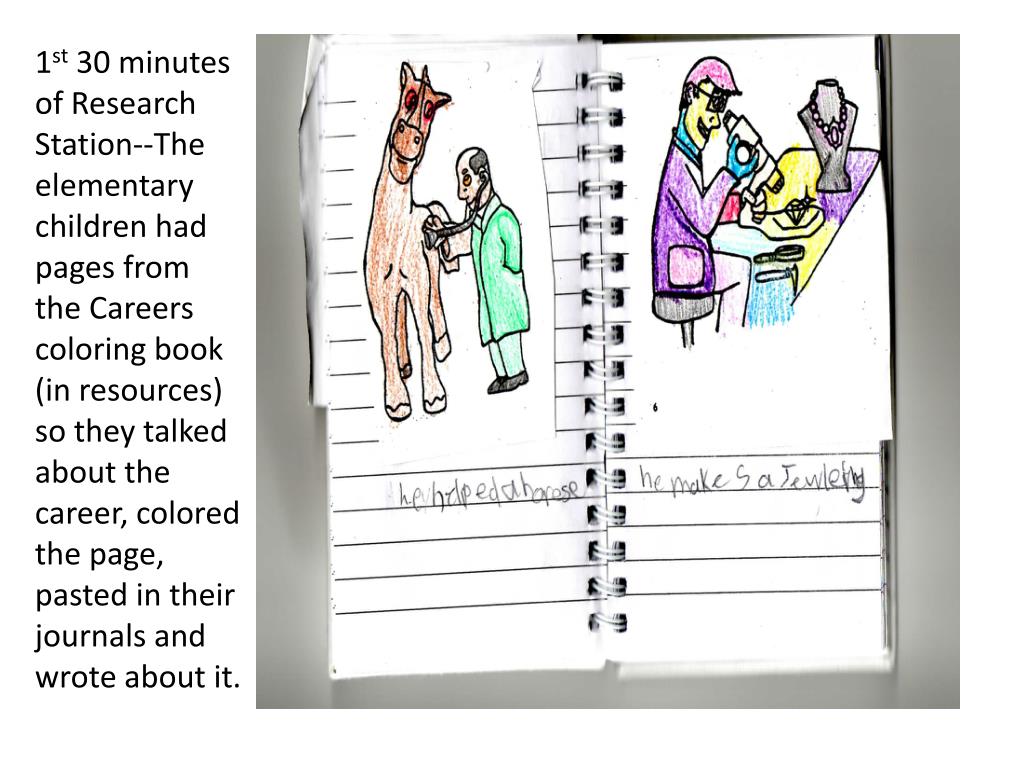 1st 30 minutes
of Research
Station--The
elementary
children had
pages from
the Careers
coloring book
(in resources)
so they talked
about the
career, colored
the page,
pasted in their
journals and
wrote about it.
he helped a horese
he makes a